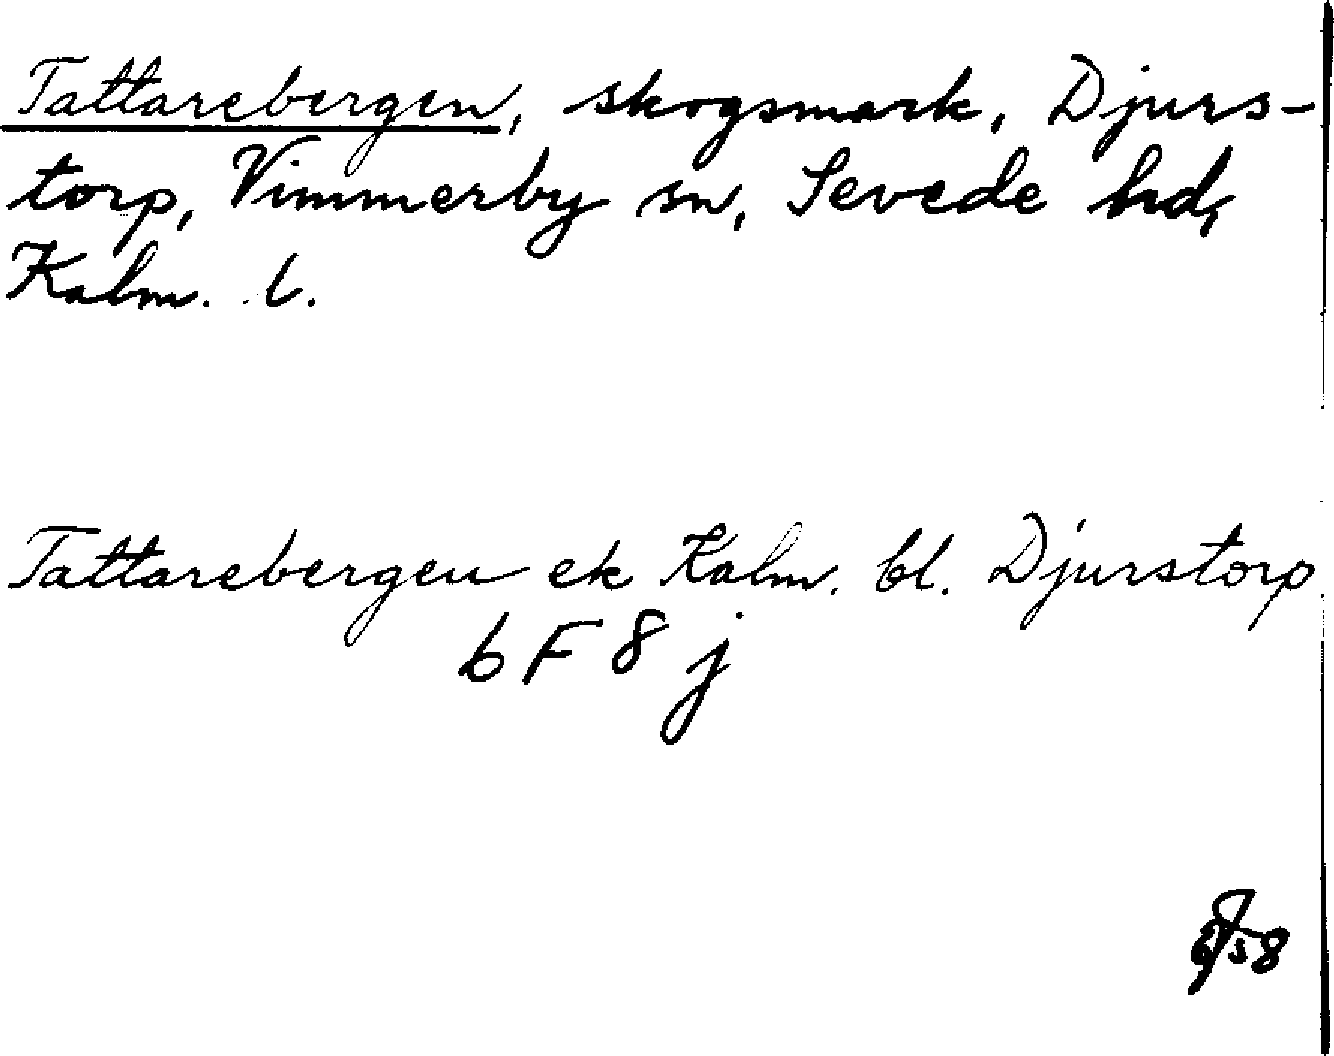 Tattarebergen, skogsmark, Djurs-
torp, Vimmerby sn, Sevede hd,
Kalm. l.
Tattarebergen ek Kalm. bl. Djurstorp
6 F 8 j
58